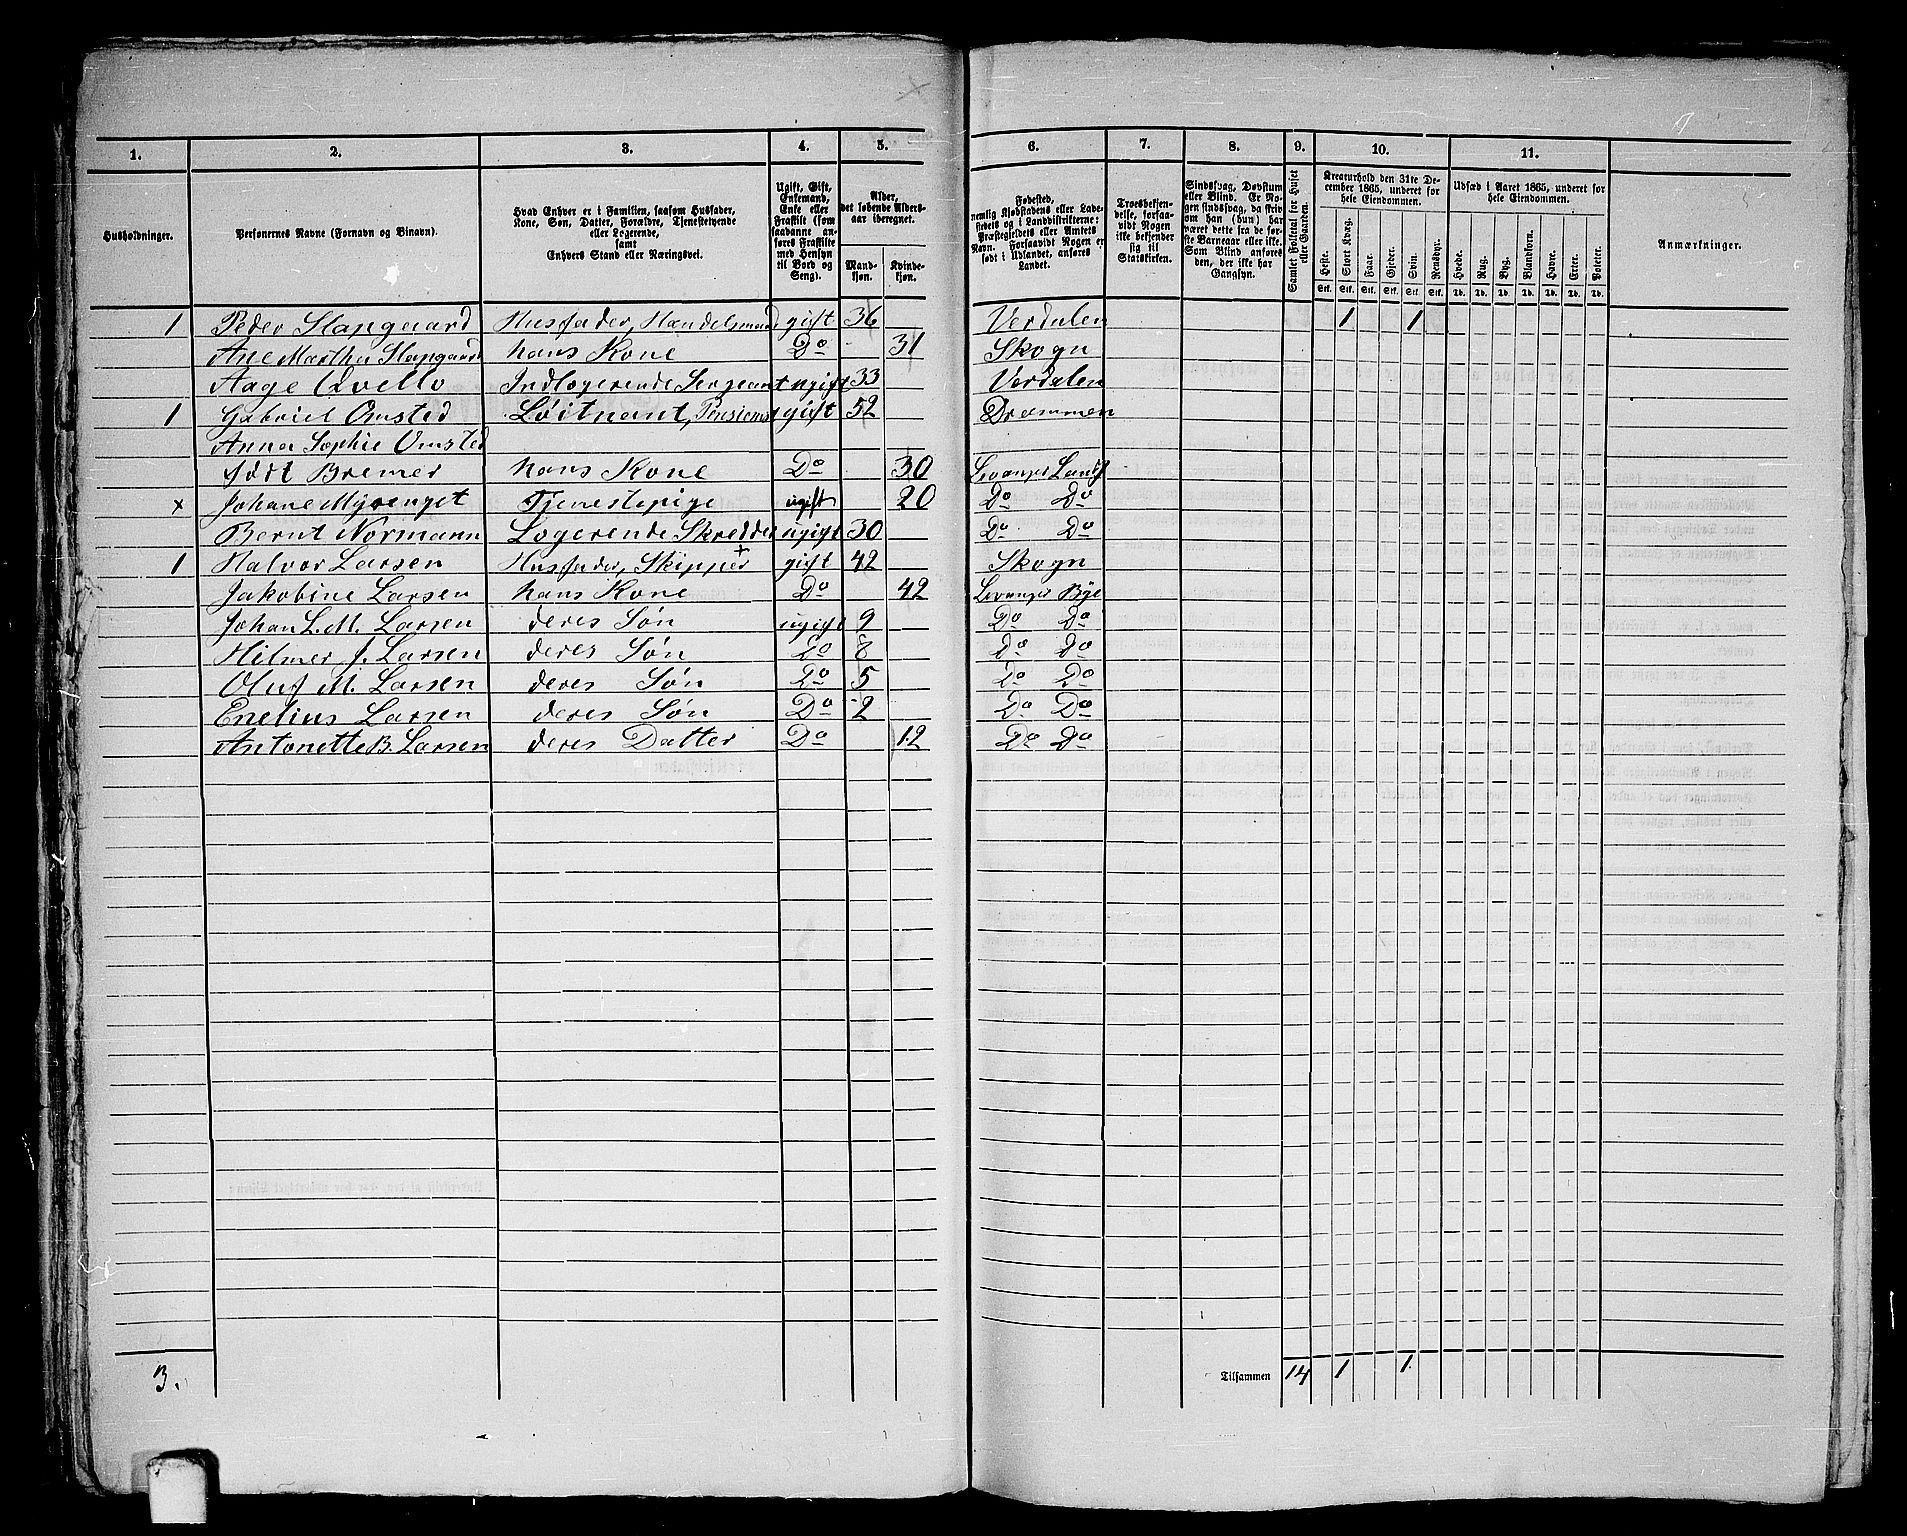 1. 2. 3. 4. 5. 6. 7. 8. 9. 10. 11.
Husholdninger.
Personernes Navne (Fornavn og Binavn).
Hvad Enhver er i Familien, saasom Husfader,
Kone, Søn, Datter, Forældre, Tjenestetyende
eller Logerende,
samt
Enhvers Stand eller Næringsvei.
Ugift, Gift,
Enkemand,
Enke eller
Fraskilt (som
saadanne an-
føres Fraskilte
med Hensyn
til Bord og
Seng).
Alder,
det løbende Alders-
aar iberegnet.
Mand-
kjøn.
Kvinde-
kjøn.
Fødested,
nemlig Kjøbstadens eller Lade-
stedets og i Landdistrikterne:
Præstegjeldets eller Amtets
Navn. Forsaavidt Nogen er
født i Udlandet, anføres
Landet.
Troesbekjen-
delse, forsaa-
vidt Nogen
ikke bekjender
sig til
Statskirken.
Sindssvag, Døvstum
eller Blind. Er No-
gen sindssvag, da skriv
om han (hun) har
været dette fra de før-
ste Barneaar eller ikke.
Som Blind anføres
den, der ikke har
Gangsyn.
Samlet Folketal for Huset
eller Gaarden.
Kreaturhold den 31te De-
cember 1865, underet for
hele Eiendommen.
Heste. Stort Kvæg. Faar. Gjeder. Svin. Rensdyr.
Stk. Stk. Stk. Stk. Stk. Stk.
Udsæd i Aaret 1865, underet for
hele Eiendommen.
Hvede. Rug. Byg. Blandkorn. Havre. Erter. Poteter.
Td. Td. Td. Td. Td. Td. Td.
Anmærkninger.
1 Peder Slapgaard Husfader, Handelsmand gift 36 Verdalen 1 1
Ane Martha Slapgaard hans Kone Do 31 Skogn
Aage Qvello Indlogerende Sergeant ugift 33 Verdalen
1 Gabriel Omsted Løitnant, Pensionist gift 52 Drammen
Anna Sophie Omsted
født Bremer hans Kone Do 30 Levanger Lands
x Johane Myrenget Tjenestepige ugift 20 Do Do
Bernt Normann Logerende Skredder ugift 30 Do Do
1 Halvor Larsen Husfader, Skipper gift 42 Skogn
Jakobine Larsen hans Kone Do 42 Levanger Bye
Johan L. M. Larsen deres Søn ugift 9 Do Do
Hilmer J. Larsen deres Søn Do 8 Do Do
Oluf M. Larsen deres Søn Do 5 Do Do
Enelius Larsen deres Søn Do 2 Do Do
Antonette B. Larsen deres Datter Do 12 Do Do
3. Tilsammen 14 1 1